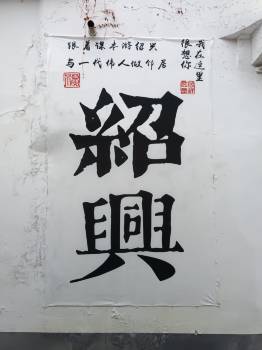 跟着课本游绍兴
与一代伟人做邻居
我在这里
很想你
紹興